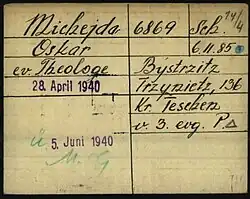 Michejda 6869 Sch. 14/4
Oskar 6.11.85
ev. Theologe Bystrzitz
28. April 1940 Trzynietz, 136
Kr. Teschen
5. Juni 1940 v. 3. evg. P.
M. G